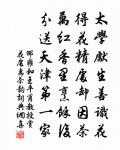 太學獻生善識花
得花精處卻因茶
萬紅香裏烹餘後
分送天津第一家
邵雍和王平甫教授賞
花處惠茶韻